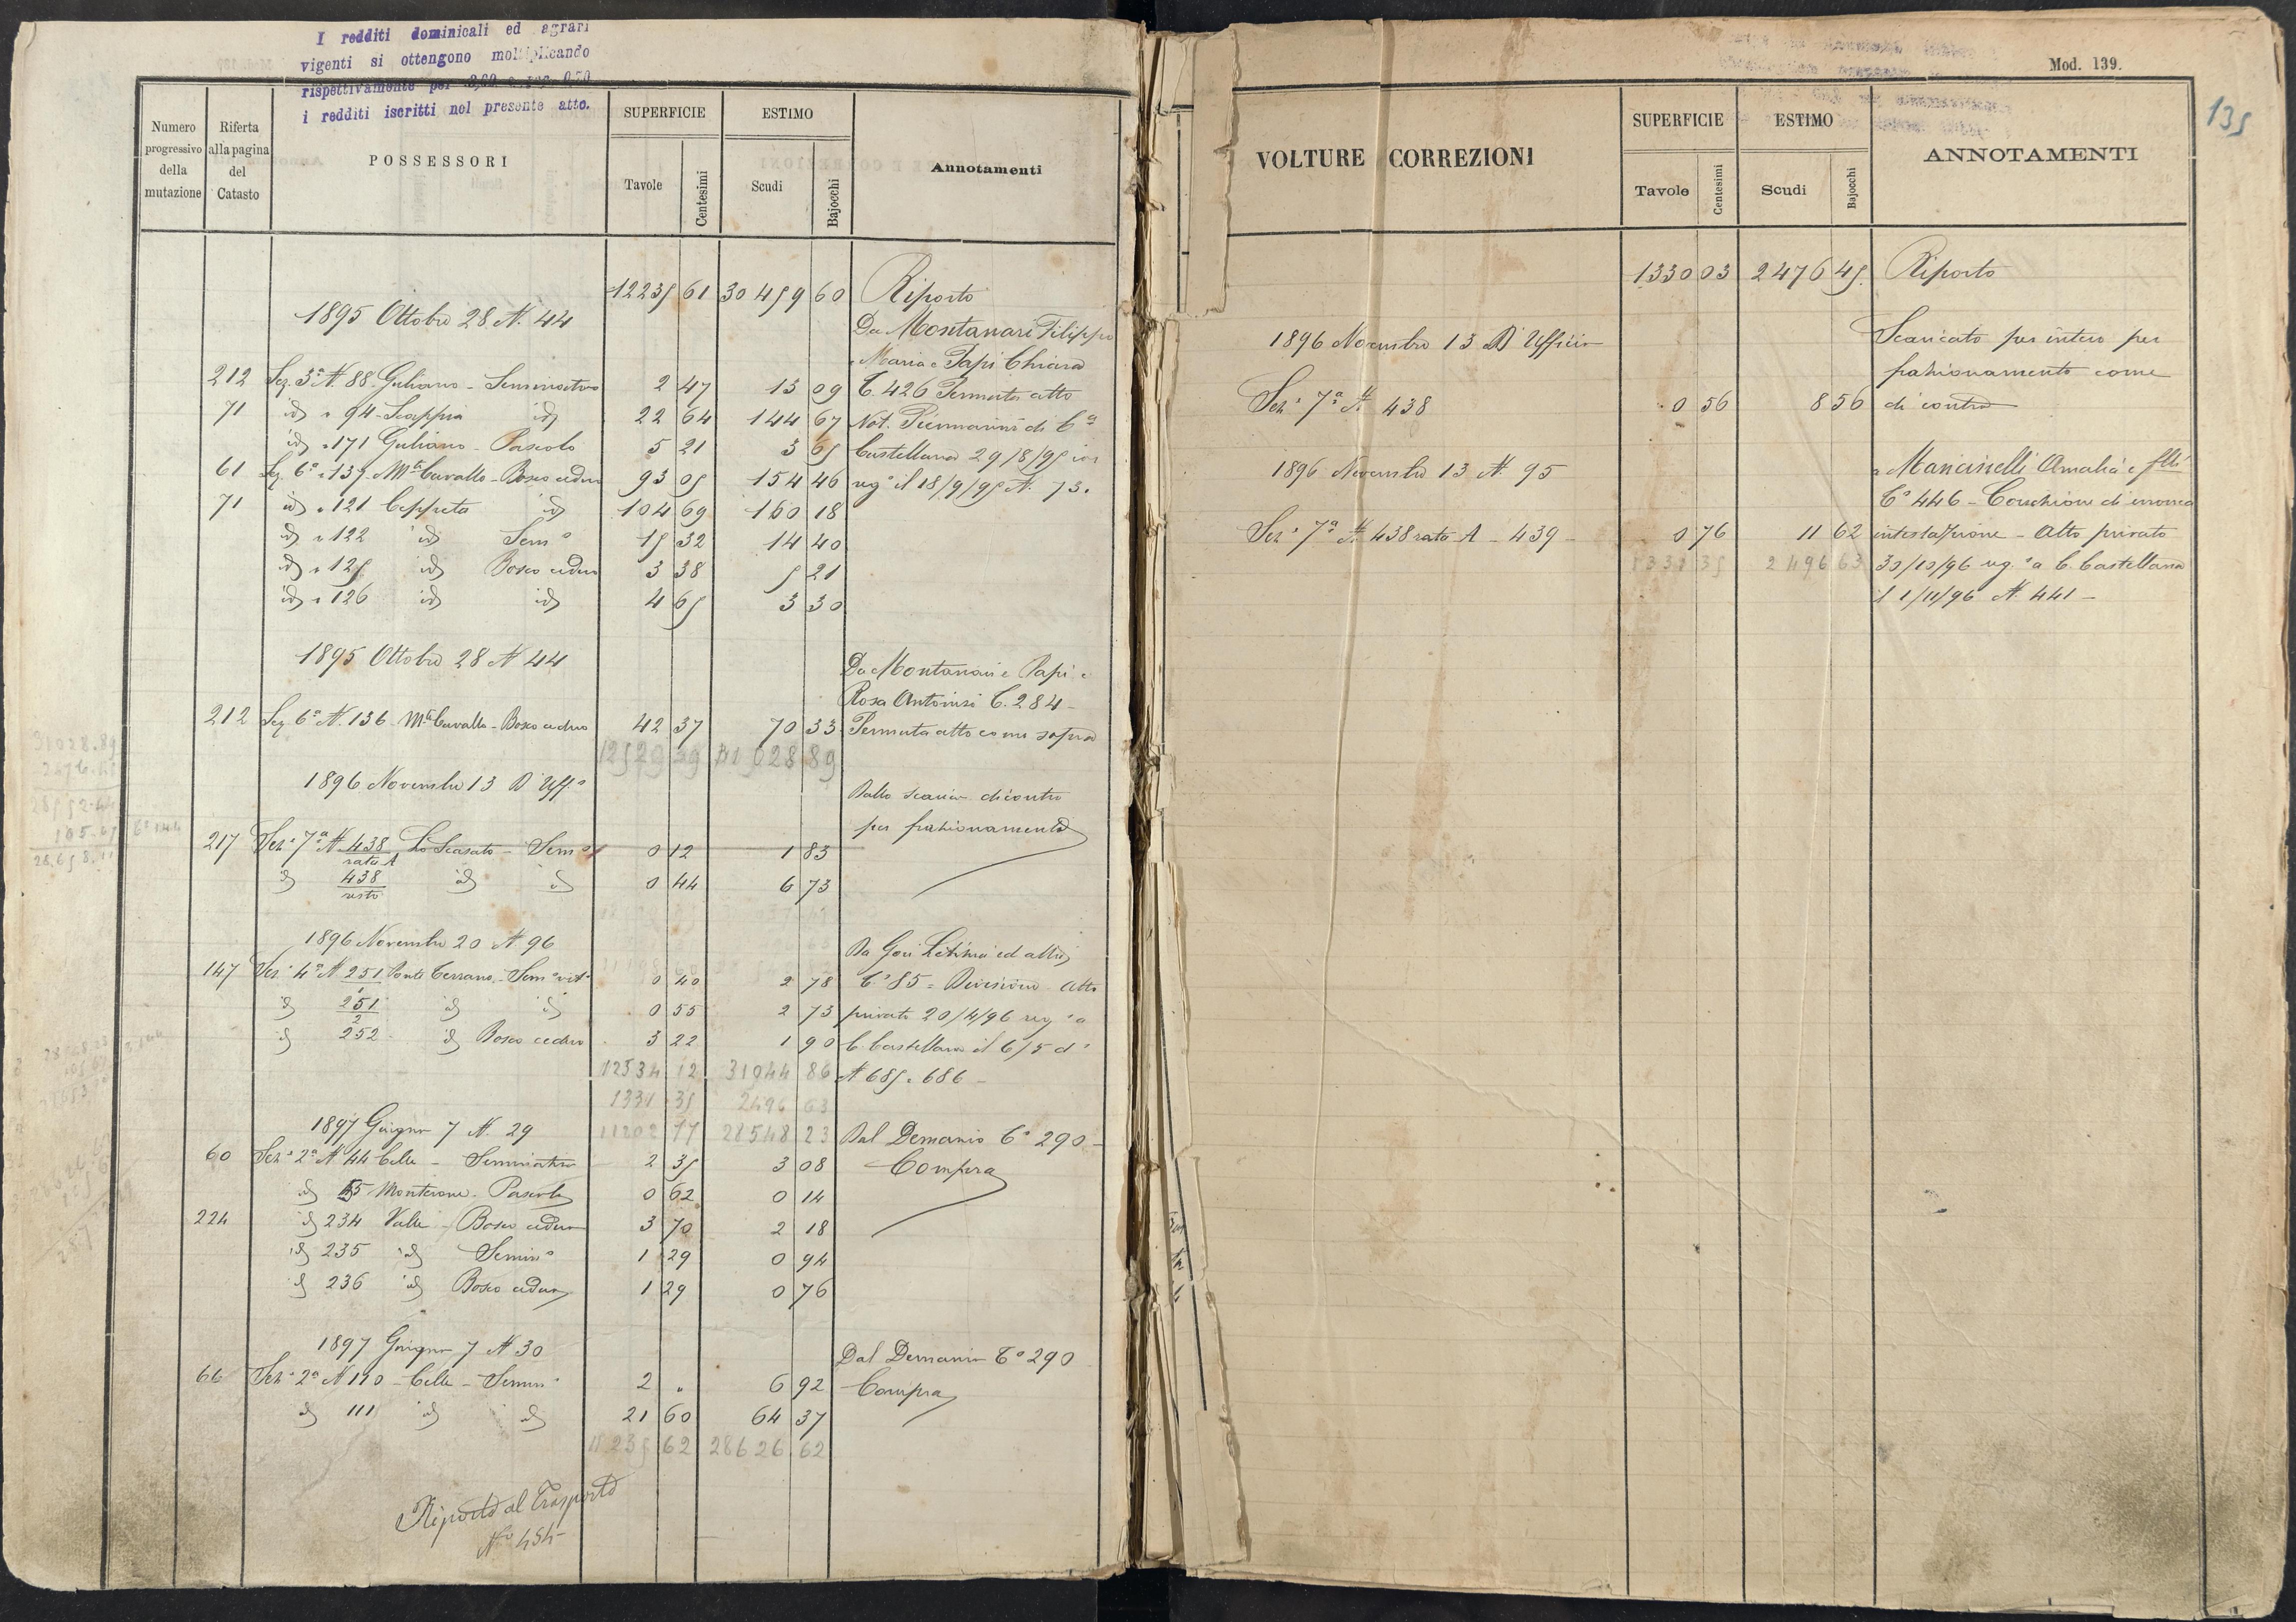 I redditi dominicali ed agrari
vigenti si ottengono moltiplicando
rispettivamente per
i redditi iscritti nel presente atto.
Numero progressivo della mutazione
Riferta alla pagina del Catasto
POSSESSORI
SUPERFICIE
Tavole Centesimi
ESTIMO
Scudi Bajocchi
Annotamenti
12235 61 30459 60 Riporto
1895 Ottobre 28 N. 44
Da Montanari Filippo
Maria e Papi Chiara
212 Sez. 3ª N. 88 Giuliano - Seminativo 2 47 13 09 C. 426 Permuta atto
71 id " 94 - Scappia id 22 64 144 67 Not. Piermarini di Cª
id " 171 Giuliano - Pascolo 5 21 3 65 Castellana 29/8/95
61 Sez. 6ª " 137 Mte Cavallo - Bosco ceduo 93 05 154 46 regº il 18/9/95 N. 73.
71 id " 121 Ceppeta id 104 69 160 18
id " 122 id Semº 15 32 14 40
id " 125 id Bosco ceduo 3 38 5 21
id " 126 id id 4 65 3 30
1895 Ottobre 28 N 44
Da Montanari e Papi e
Rosa Antonini C. 284 -
212 Sez. 6ª N. 136 Mte Cavallo - Bosco ceduo 42 37 70 33 Permuta atto come sopra
12529 39 31028 89
1896 Novembre 13 D'Uffº
Dallo scarico dicontro
per frazionamento
217 Sezº 7ª N 438 rata A Lo Scasato - Semº 0 12 1 83
id 438 resto id id 0 44 6 73
1896 Novembre 20 N 96
Da Gori Letizia ed altri
147 Sezº 4ª N 251/1 Ponte Cerrano - Semº vitº 0 40 2 78 Cº 85 = Divisione Atto
id 251/2 id id 0 55 2 73 privato 20/4/96 regº a
id 252 id Bosco ceduo 3 22 1 90 C. Castellana il 6/5 dº
12534 12 31044 86 N 685 e 686 -
1331 35 2496 63
1897 Giugno 7 N. 29
11202 77 28548 23 Dal Demanio Cº 290 -
60 Sezº 2ª N 44 Celle - Seminativo 2 35 3 08 Compra
id 65 Monterone - Pascolo 0 62 0 14
224 id 234 Valle - Bosco ceduo 3 70 2 18
id 235 id Seminº 1 29 0 94
id 236 id Bosco ceduo 1 29 0 76
1897 Giugno 7 N 30
Dal Demanio Cº 290
66 Sezº 2ª N 110 - Celle - Seminº 2 " 6 92 Compra
id 111 id id 21 60 64 37
11235 62 28626 62
Riporto al Trasporto
Nº 454
Mod. 139.
135
VOLTURE CORREZIONI
SUPERFICIE
Tavole Centesimi
ESTIMO
Scudi Bajocchi
ANNOTAMENTI
1330 03 2476 45 Riporto
1896 Novembre 13 D'Ufficio
Scaricato per intero per
frazionamento come
Sezº 7ª N 438 0 56 8 56 di contro
1896 Novembre 13 N. 95
a Mancinelli Amalia e flli
Cº 446 - Correzione di erronea
Sezº 7ª N. 438 rata A - 439 - 0 76 11 62 intestazione - Atto privato
1331 35 2496 63 30/10/96 regº a C. Castellana
il 1/11/96 N. 441 -